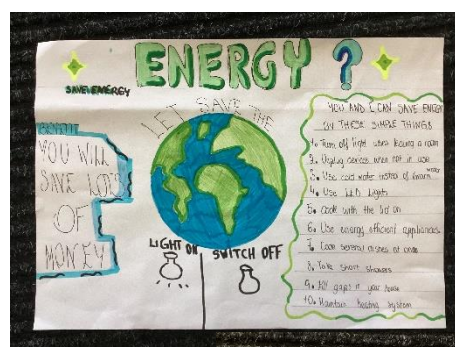 ENERGY ?
SAVE ENERGY
LET SAVE THE
BENEFIT
YOU WILL
SAVE LOTS
OF
MONEY
LIGHT ON
SWITCH OFF
YOU AND I CAN SAVE ENERGY
BY THESE SIMPLE THINGS
1. Turn off light when leaving a room
2. Unplug devices when not in use
3. Use cold water instead of warm water
4. Use LED Lights
5. Cook with the lid on
6. Use energy efficient appliances
7. Cook several dishes at once
8. Take short showers
9. gaps in your house
10. Maintain heating system